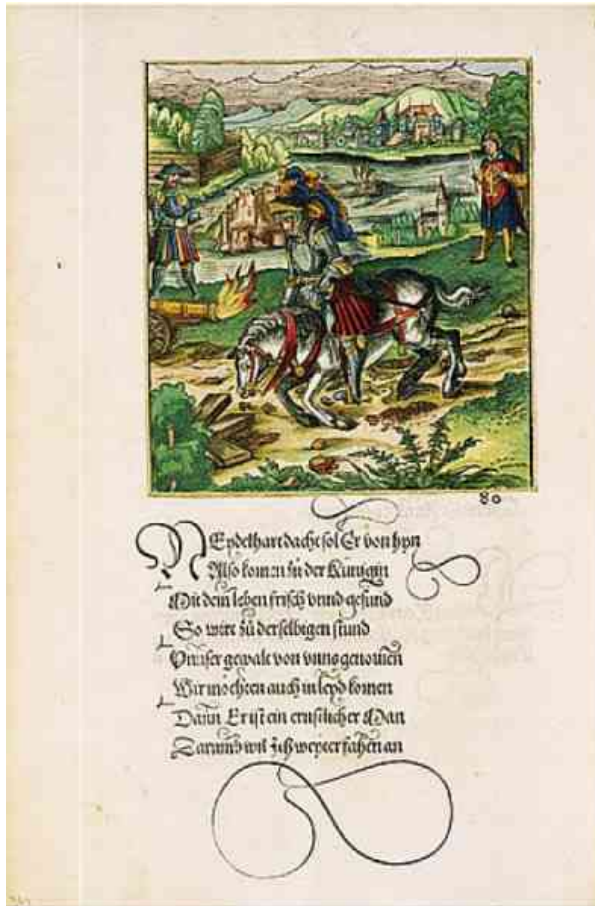 80
Neydelhart dacht sol Er von hyn
Also komen zu der Künigin
Mit dem leben frisch vnnd gesund
So wirt zů derselbigen stund
Vnnser gewalt von vnns genomen
Wir möchten auch in leyd komen
Dann Er ist ein ernstlicher Man
Darumb wil Ich weyter fahen an